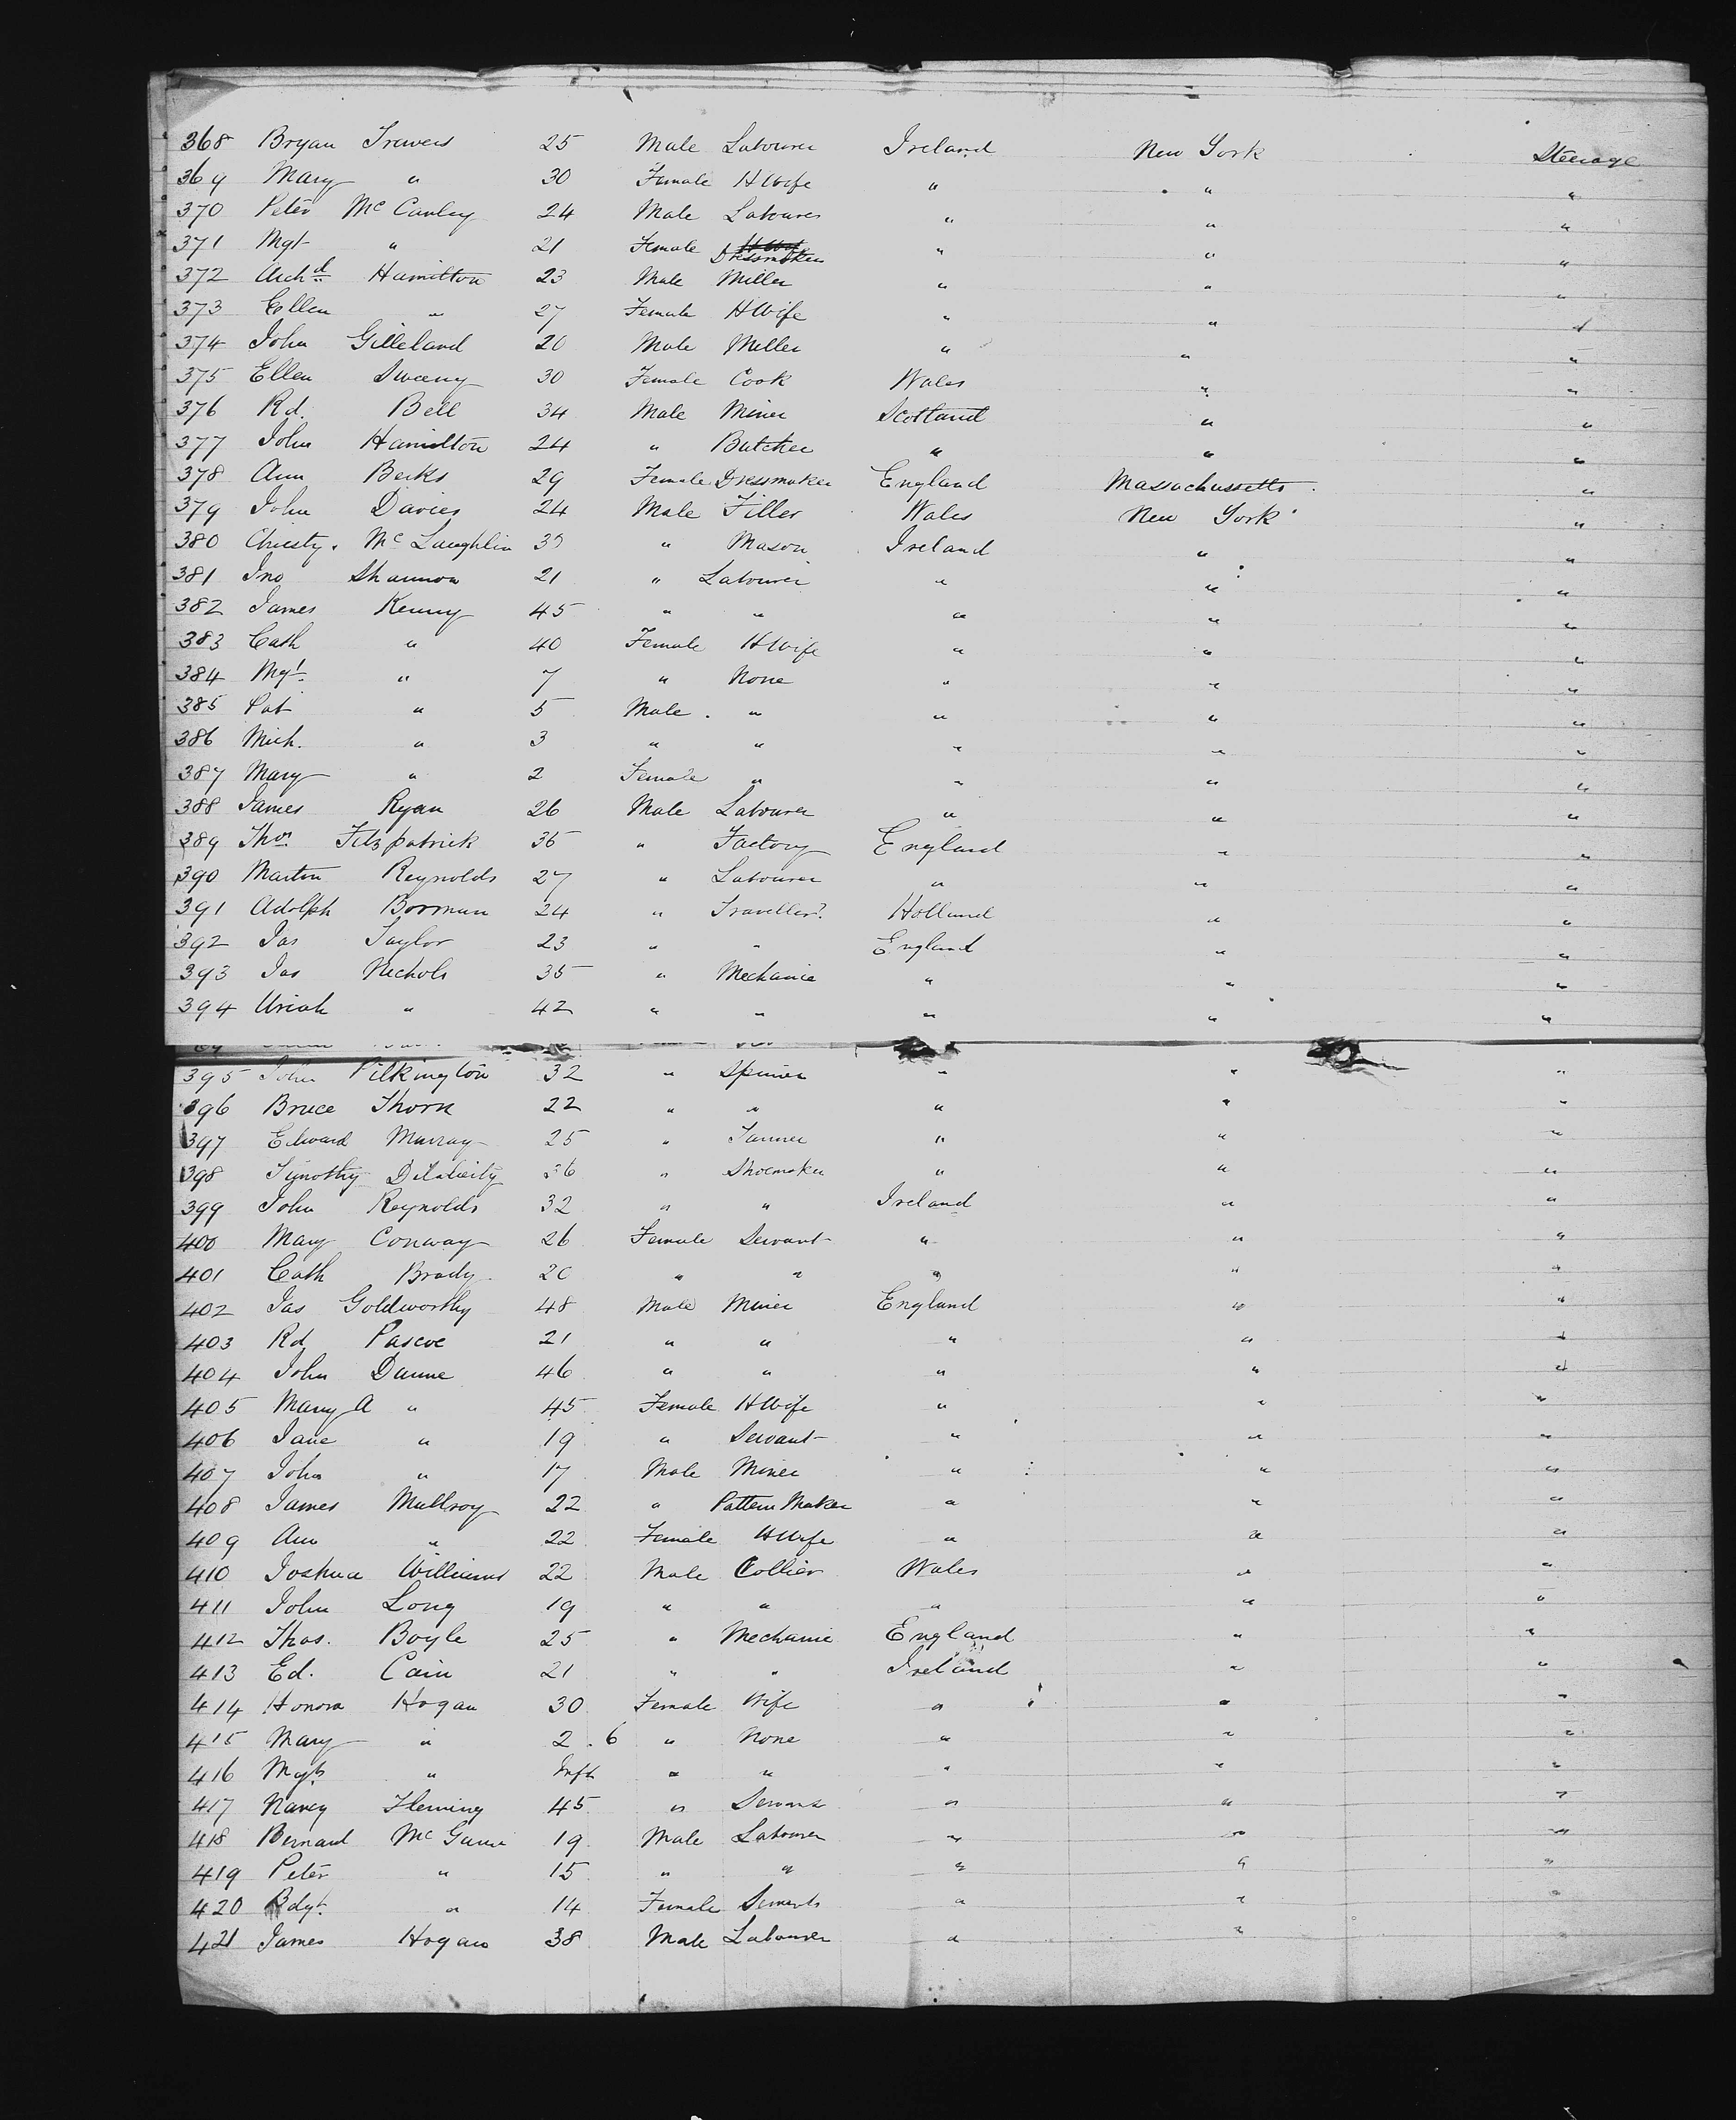 368 Bryan Trevers 25 Male Labourer Ireland New York Steerage
369 Mary " 30 Female HWife " " "
370 Peter McCauley 24 Male Labourer " " "
371 Mgt " 21 Female Dressmaker " " "
372 Archd Hamilton 23 Male Miller " " "
373 Ellen " 27 Female HWife " " "
374 John Gilleland 20 Male Miller " " "
375 Ellen Sweeny 30 Female Cook Wales " "
376 Rd. Bell 34 Male Miner Scotland " "
377 John Hamilton 24 " Butcher " " "
378 Ann Berks 29 Female Dressmaker England Massachussetts "
379 John Davies 24 Male Filler Wales New York "
380 Christy. McLaughlin " Mason Ireland " "
381 Jno Shannon 21 " Labourer " " "
382 James Kenny 45 " " " " "
383 Cath " 40 Female HWife " " "
384 Mgt. " 7 " None " " "
385 Pat " 5 Male " " " "
386 Mich. " 3 " " " " "
387 Mary " 2 Female " " " "
388 James Ryan 26 Male Labourer " " "
389 Thos. Fitzpatrick 35 " Factory England " "
390 Martin Reynolds 27 " Labourer " " "
391 Adolph Borman 24 " Traveller? Holland " "
392 Jas Taylor 23 " " England " "
393 Jas Nichols 35 " Mechanic " " "
394 Uriah " 42 " " " " "
395 John Pilkington 32 " Spiner " " "
396 Bruce Thorn 22 " " " " "
397 Edward Murray 25 " Tanner " " "
398 Timothy 36 " Shoemaker " " "
399 John Reynolds 32 " " Ireland " "
400 Mary Conway 26 Female Servant " " "
401 Cath Brady 20 " " " " "
402 Jas Goldworthy 48 Male Miner England " "
403 Rd Pascoe 21 " " " " "
404 John Dunne 46 " " " " "
405 Mary A " 45 Female HWife " " "
406 Jane " 19 " Servant " " "
407 John " 17 Male Miner " " "
408 James Mullroy 22 " Pattern Maker " " "
409 Ann " 22 Female HWife " " "
410 Joshua Williams 22 Male Collier Wales " "
411 John Long 19 " " " " "
412 Thos. Boyle 25 " Mechanic England " "
413 Ed. Cain 21 " " Ireland " "
414 Honora Hogan 30 Female Wife " " "
415 Mary " 2.6 " None " " "
416 Mgt. " Inft " " " " "
417 Nancy Fleming 45 " Servant " " "
418 Bernard McGuire 19 Male Labourer " " "
419 Peter " 15 " " " " "
420 Bdgt. " 14 Female Servants " " "
421 James Hogan 38 Male Labourer " "